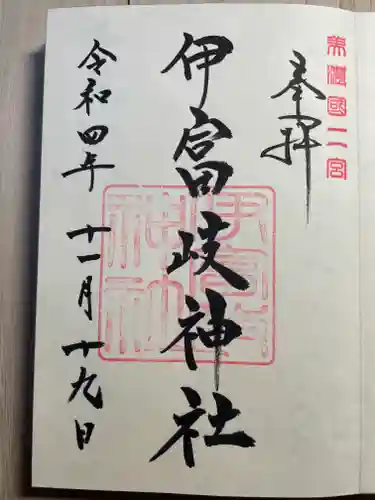 美濃國二宮
奉拝
伊富岐神社
伊富岐神社
令和四年十一月十九日